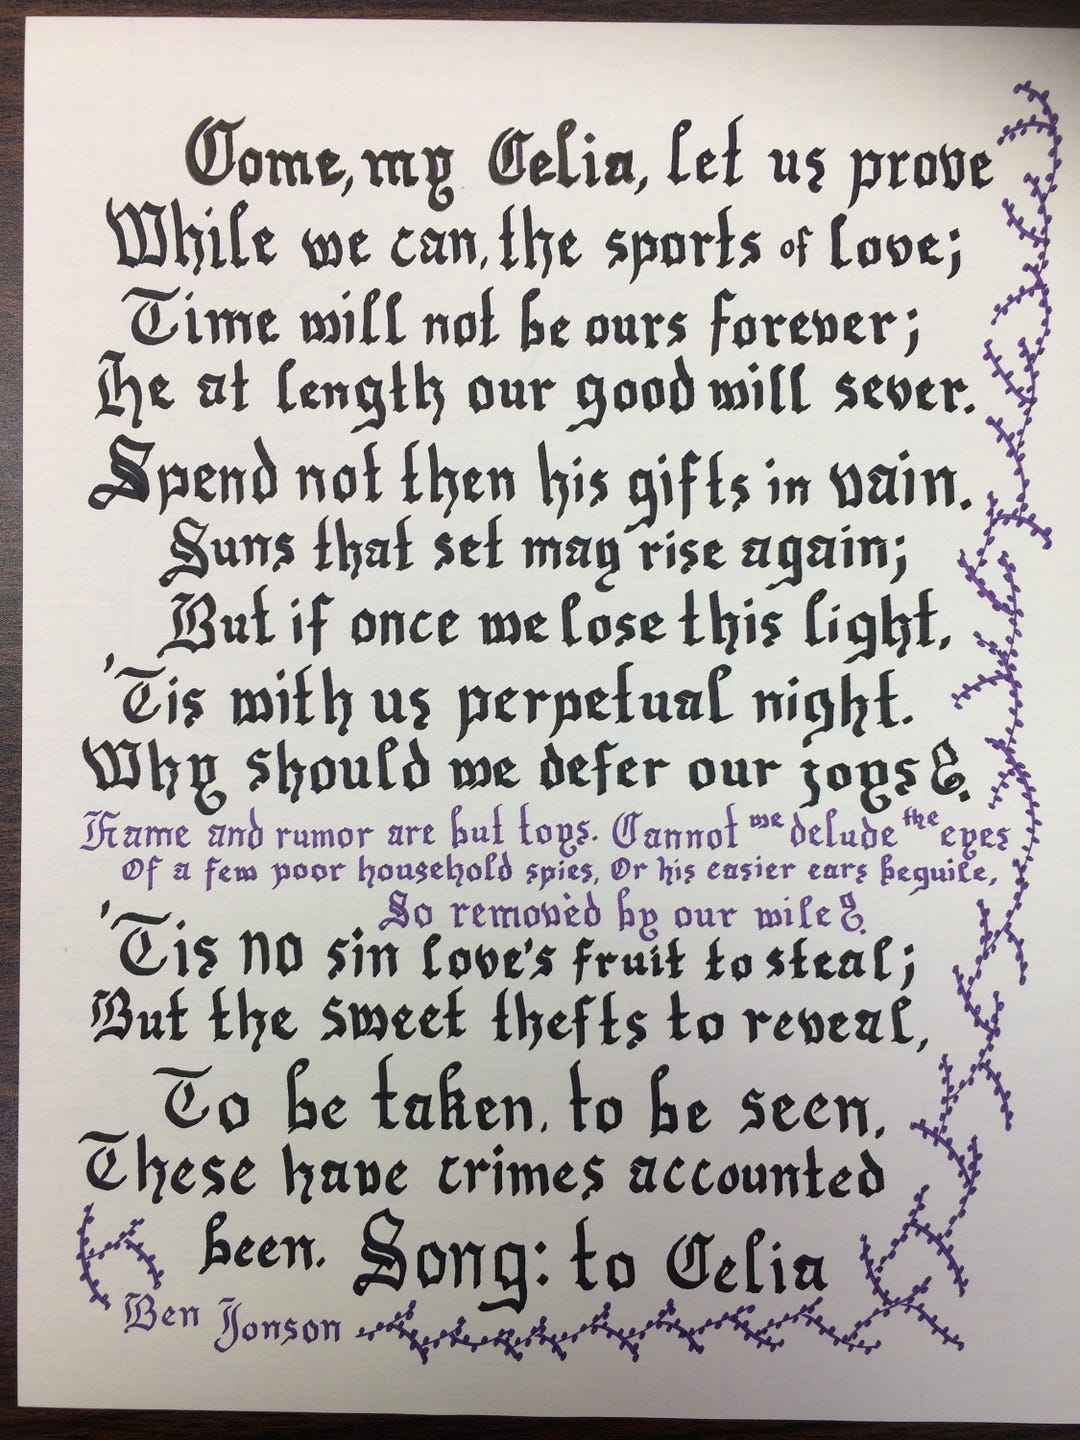 Come, my Celia, let us prove
While we can, the sports of love;
Time will not be ours forever;
He at length our good will sever.
Spend not then his gifts in vain.
Suns that set may rise again;
But if once we lose this light,
'Tis with us perpetual night.
Why should we defer our joys?
Fame and rumor are but toys. Cannot we delude the eyes
Of a few poor household spies, Or his easier ears beguile,
So removèd by our wile?
'Tis no sin love's fruit to steal;
But the sweet thefts to reveal,
To be taken, to be seen,
These have crimes accounted
been. Song: to Celia
Ben Jonson